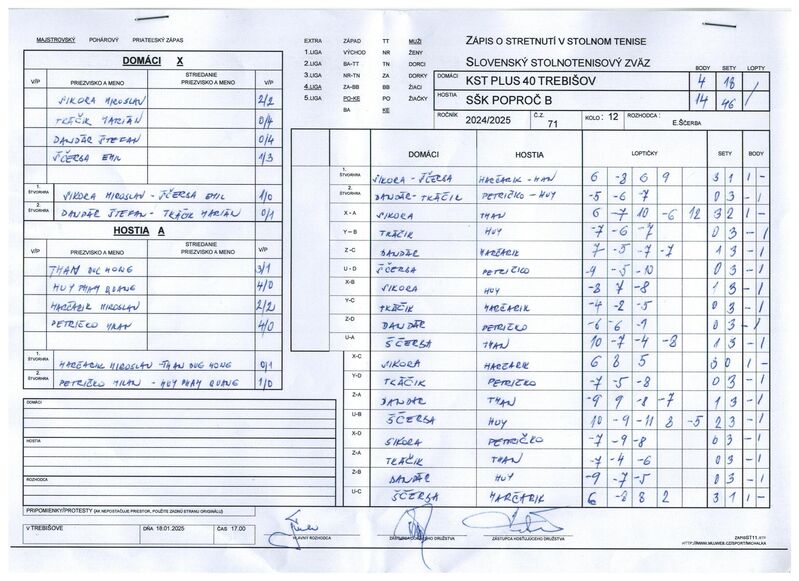 MAJSTROVSKÝ POHÁROVÝ PRIATEĽSKÝ ZÁPAS
DOMÁCI X
V/P PRIEZVISKO A MENO STRIEDANIE PRIEZVISKO A MENO V/P
SIKORA MIROSLAV 2/2
TKÁČIK MARIÁN 0/4
DANDÁR ŠTEFAN 0/4
ŠČERBA EMIL 1/3
1. ŠTVORHRA SIKORA MIROSLAV - ŠČERBA EMIL 1/0
2. ŠTVORHRA DANDÁR ŠTEFAN - TKÁČIK MARIÁN 0/1
HOSTIA A
V/P PRIEZVISKO A MENO STRIEDANIE PRIEZVISKO A MENO V/P
THAM DUC HONG 3/1
HUY PHAM QUANG 4/0
HARČARIK MIROSLAV 2/2
PETRIČKO MILAN 4/0
1. ŠTVORHRA HARČARIK MIROSLAV - THAN DUG HONG 0/1
2. ŠTVORHRA PETRIČKO MILAN - HUY PHAM QUANG 1/0
DOMÁCI
HOSTIA
ROZHODCA
PRIPOMIENKY/PROTESTY (AK NEPOSTAČUJE PRIESTOR, POUŽITE ZADNÚ STRANU ORIGINÁLU)
V TREBIŠOVE DŇA 18.01.2025 ČAS 17.00
EXTRA ZÁPAD TT MUŽI
1.LIGA VÝCHOD NR ŽENY
2.LIGA BA-TT TN DORCI
3.LIGA NR-TN ZA DORKY
4.LIGA ZA-BB BB ŽIACI
5.LIGA PO-KE PO ŽIAČKY
BA KE
ZÁPIS O STRETNUTÍ V STOLNOM TENISE
SLOVENSKÝ STOLNOTENISOVÝ ZVÄZ
BODY SETY LOPTY
DOMÁCI KST PLUS 40 TREBIŠOV 4 18 /
HOSTIA SŠK POPROČ B 14 46 /
ROČNÍK 2024/2025 Č.Z. 71 KOLO : 12 ROZHODCA : E.ŠČERBA
DOMÁCI HOSTIA LOPTIČKY SETY BODY
1. ŠTVORHRA SIKORA - ŠČERBA HARČARIK - HAN 6 -8 6 9 3 1 1 -
2. ŠTVORHRA DANDÁR - TKÁČIK PETRIČKO - HUY -5 -6 -7 0 3 - 1
X - A SIKORA THAN 6 -7 10 -6 12 3 2 1 -
Y – B TKÁČIK HUY -7 -6 -7 0 3 - 1
Z -C DANDÁR HARČARIK 7 -5 -7 -7 1 3 - 1
U - D ŠČERBA PETRIČKO -9 -5 -10 0 3 - 1
X-B SIKORA HUY -8 7 -8 1 3 - 1
Y-C TKÁČIK HARČARIK -4 -2 -5 0 3 - 1
Z-D DANDÁR PETRIČKO -6 -6 -1 0 3 - 1
U-A ŠČERBA THAN 10 -7 -4 -8 1 3 - 1
X-C SIKORA HARČARIK 6 8 5 3 0 1 -
Y-D TKÁČIK PETRIČKO -7 -5 -8 0 3 - 1
Z-A DANDÁR THAN -9 9 -8 -7 1 3 - 1
U-B ŠČERBA HUY 10 -9 -11 8 -5 2 3 - 1
X-D SIKORA PETRIČKO -7 -9 -8 0 3 - 1
Z-A TKÁČIK THAN -7 -4 -6 0 3 - 1
Z-B DANDÁR HUY -9 -7 -5 0 3 - 1
U-C ŠČERBA HARČARIK 6 -8 8 2 3 1 1 -
HLAVNÝ ROZHODCA ZÁSTUPCA DOMÁCEHO DRUŽSTVA ZÁSTUPCA HOSŤUJÚCEHO DRUŽSTVA
ZAPISST11.RTF
HTTP://WWW.MUJWEB.CZ/SPORT/MICHALKA